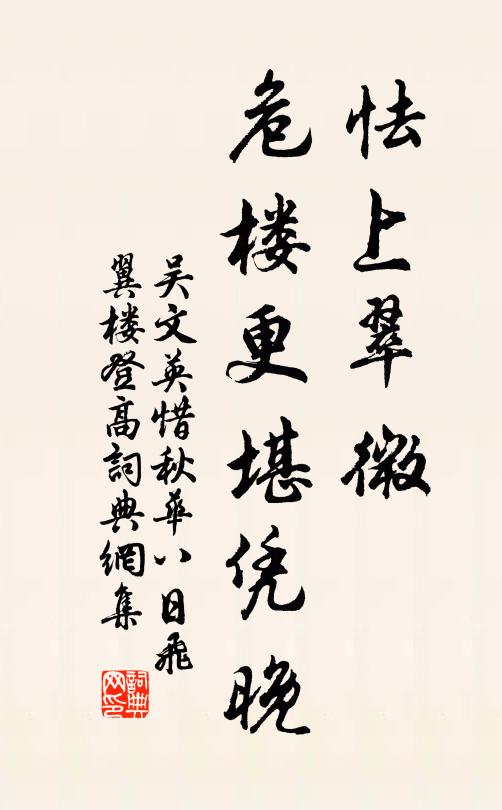 怯上翠微
危楼更堪凭晚
吴文英惜秋華八日飛
翼楼登高詞典網集
詞典
网印